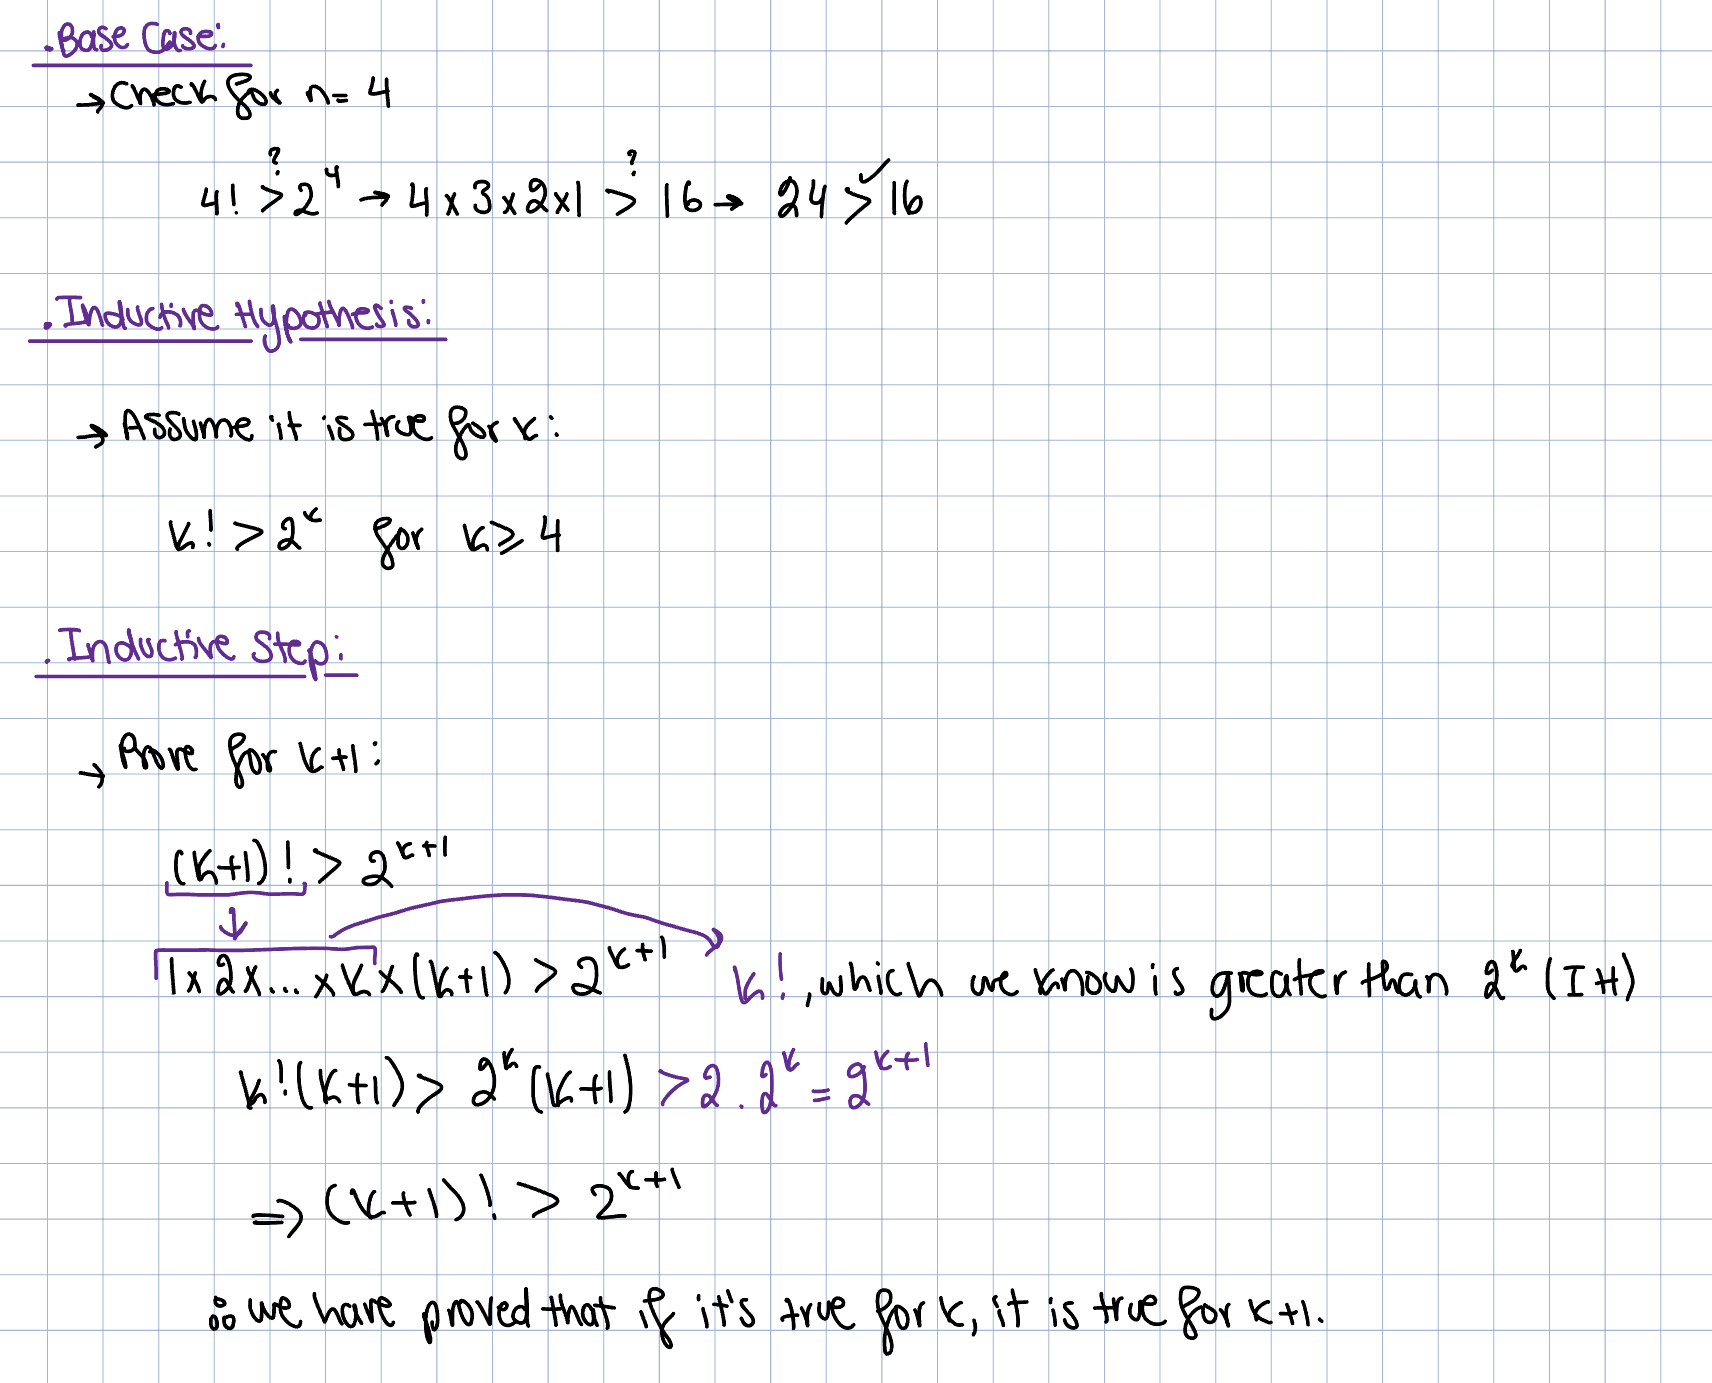 . Base Case:
→ Check for n = 4
4! >? 2⁴ → 4 x 3 x 2 x 1 >? 16 → 24 >✓ 16
. Inductive Hypothesis:
→ Assume it is true for k:
k! > 2ᵏ for k ≥ 4
. Inductive Step:
→ Prove for k+1:
(k+1)! > 2ᵏ⁺¹
↓
1 x 2 x ... x k x (k+1) > 2ᵏ⁺¹ k!, which we know is greater than 2ᵏ (IH)
k!(k+1) > 2ᵏ (k+1) > 2 . 2ᵏ = 2ᵏ⁺¹
⇒ (k+1)! > 2ᵏ⁺¹
∴ we have proved that if it's true for k, it is true for k+1.